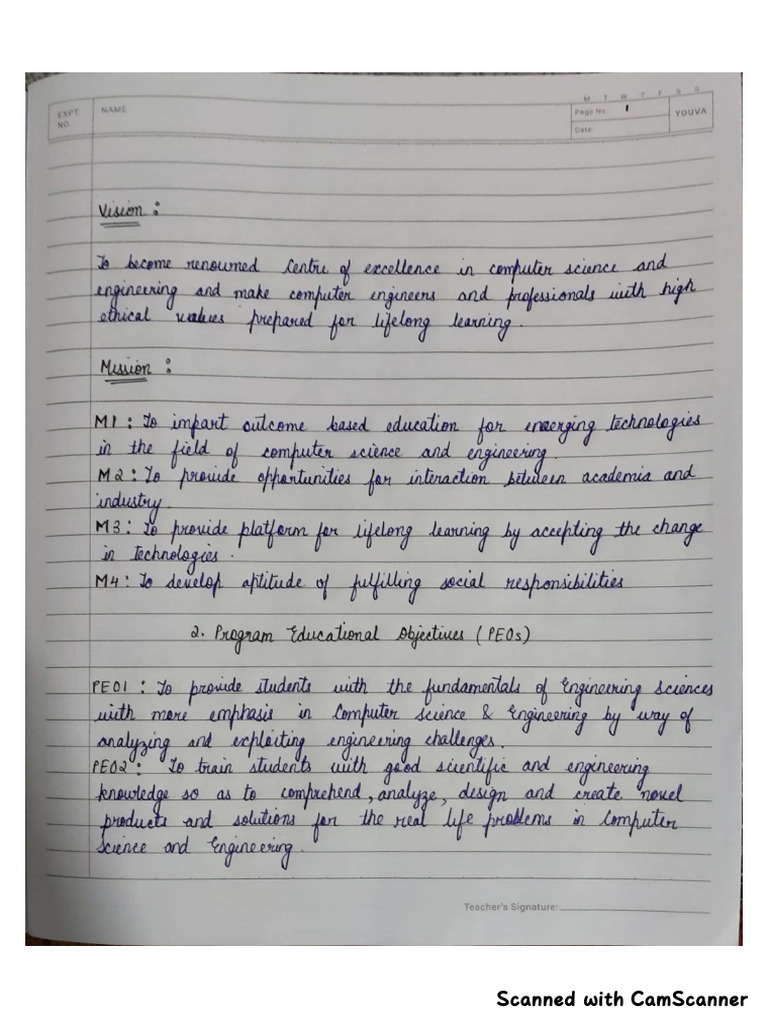 M T W T F S S
EXPT. NO.
NAME
Page No. 1
Date:
YOUVA
Vision :
To become renowned Centre of excellence in computer science and
engineering and make computer engineers and professionals with high
ethical values prepared for lifelong learning.
Mission :
M1 : To impart outcome based education for emerging technologies
in the field of computer science and engineering.
M2 : To provide opportunities for interaction between academia and
industry.
M3 : To provide platform for lifelong learning by accepting the change
in technologies.
M4 : To develop aptitude of fulfilling social responsibilities
2. Program Educational Objectives (PEOs)
PEO1 : To provide students with the fundamentals of Engineering Sciences
with more emphasis in Computer Science & Engineering by way of
analyzing and exploiting engineering challenges.
PEO2 : To train students with good scientific and engineering
knowledge so as to comprehend, analyze, design and create novel
products and solutions for the real life problems in Computer
Science and Engineering.
Teacher's Signature:
Scanned with CamScanner